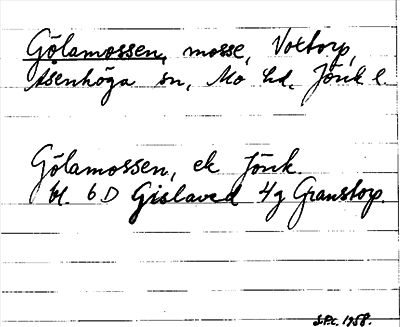 Gölamossen, mosse, Voxtorp,
Åsenhöga sn, Mo hd, Jönk l.
Gölamossen, ek Jönk.
bl. 6 D Gislaved 4g Granstorp.
1958.